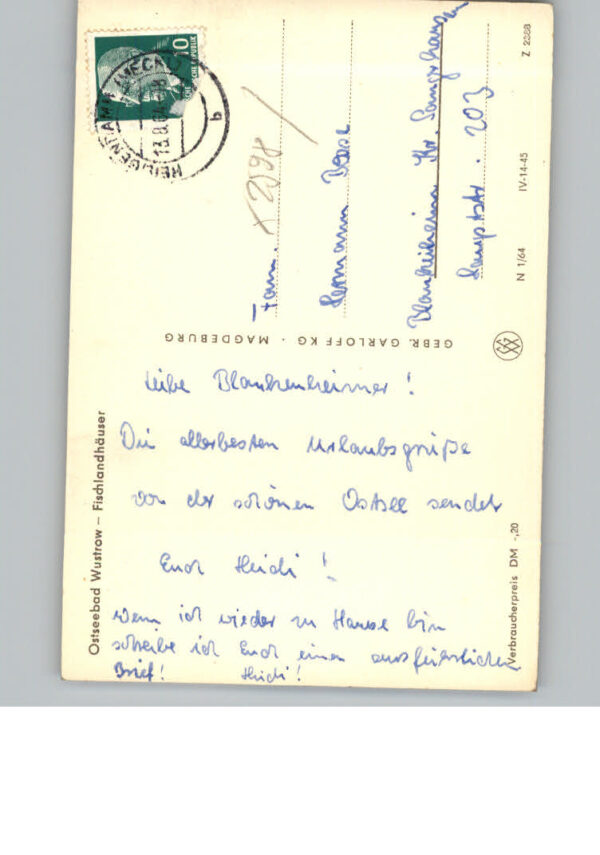 Liebe Blankenheimer!
Die allerbesten Urlaubsgrüße
von der schönen Ostsee sendet
Euch Heidi!
Wenn ich wieder zu Hause bin
schreibe ich Euch einen ausführlichen
Brief! Heidi!
Ostseebad Wustrow – Fischlandhäuser
GEBR. GARLOFF KG · MAGDEBURG
Fam.
Hermann
Blankenheim Kr. Sangerhausen
Hauptstr. 203
x 2598 /
10
HEILIGENDAMM (MECKL)
13.8.64
b
Verbraucherpreis DM -,20
N 1/64 IV-14-45 Z 2388